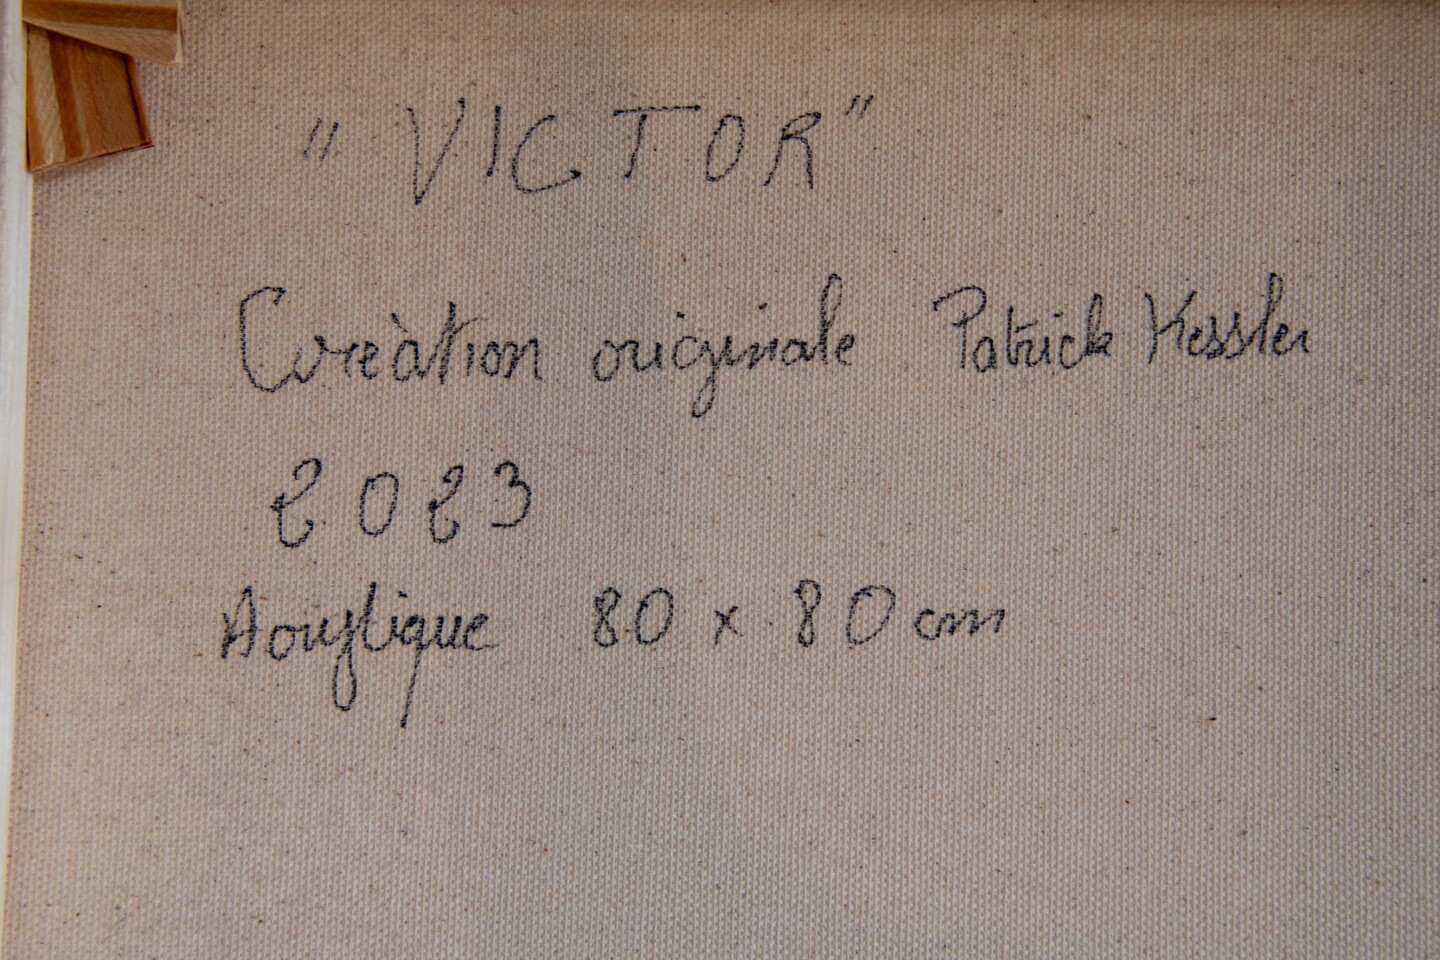 "VICTOR"
Création originale Patrick Kessler
2023
Acrylique 80 x 80 cm